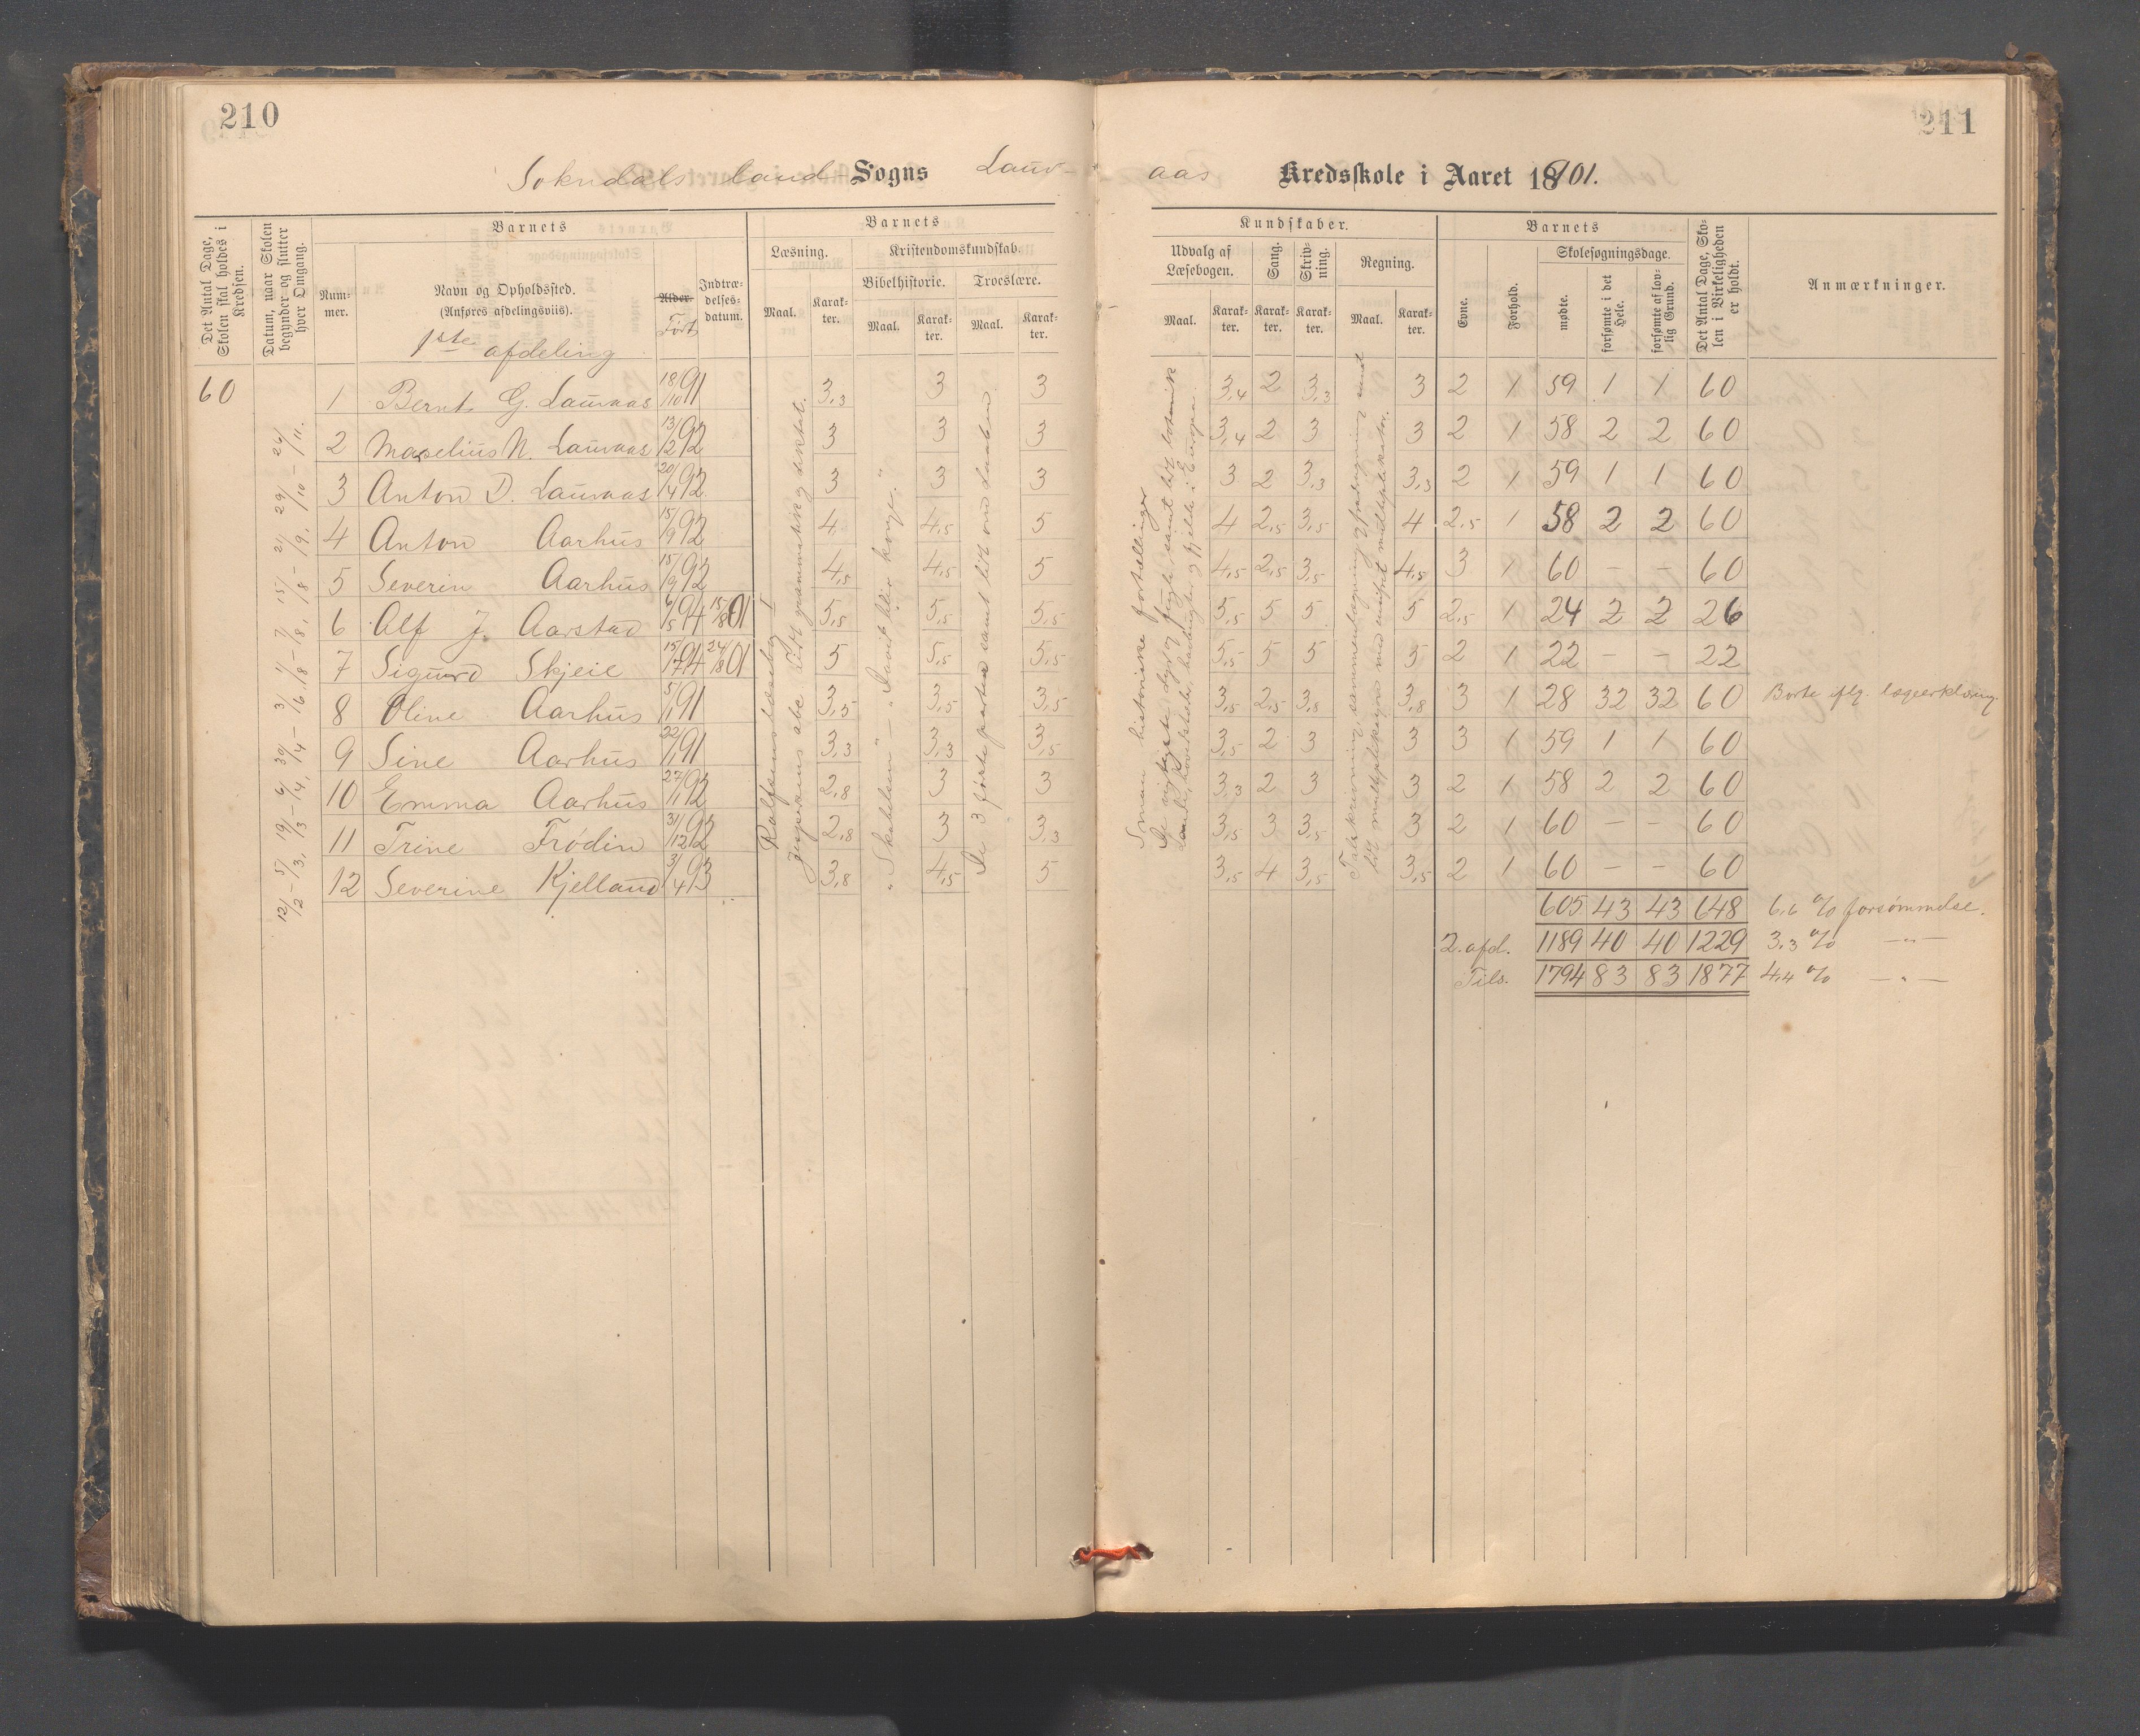 210
211
Sokndals land-Sogns Lauv-
aas Kredsskole i Aaret 1901.
Det Antal Dage, Skolen skal holdes i Kredsen.
Datum, naar Skolen begynder og slutter hver Omgang.
Barnets
Num-
mer.
Navn og Opholdssted.
(Anføres afdelingsviis).
1ste afdeling
Alder.
Født
Indtræ-
delses-
datum.
Barnets
Læsning.
Maal.
Karak-
ter.
Kristendomskundskab.
Bibelhistorie.
Maal.
Karak-
ter.
Troeslære.
Maal.
Karak-
ter.
Kundskaber.
Udvalg af
Læsebogen.
Maal.
Karak-
ter.
Sang.
Karak-
ter.
Skriv-
ning.
Karak-
ter.
Regning.
Maal.
Karak-
ter.
Barnets
Evne.
Forhold.
Skolesøgningsdage.
mødte.
forsømte i det Hele.
forsømte af lov-
lig Grund.
Det Antal Dage, Sko-
len i Virkeligheden
er holdt.
Anmærkninger.
60
12/2 – 5/3, 19/3 – 6/4, 30/4 – 3/6, 1/8 – 7/8, 15/8 – 2/9, 29/10 – 26/11.
Rolfsens læsebog I
Jespersens abc. Lidt grammatik og diktat.
"Skabelsen" – "David blir konge."
De 3 første parter samt lidt om
Smaa historiske fortællinger
De vigtigste dyr og fugle samt lidt botanik
Lande, hovedstæder, havbugter og fjelde i Europa.
Talskrivning, sammenlægning og fradragning samt
lidt multiplikasjon med ensifret multiplikator.
1 Bernt G. Lauvaas 18/10 91 3,3 3 3 3,4 2 3,3 3 2 1 59 1 1 60
2 Marselius N. Lauvaas 13/2 92 3 3 3 3,4 2 3 3 2 1 58 2 2 60
3 Anton D. Lauvaas 20/4 92 3 3 3 3 2 3,3 3,3 2 1 59 1 1 60
4 Anton Aarhus 15/9 92 4 4,5 5 4 2,5 3,5 4 2,5 1 58 2 2 60
5 Severin Aarhus 15/9 92 4,5 4,5 5 4,5 2,5 3,5 4,5 3 1 60 – – 60
6 Alf J. Aarstad 6/5 94 15/8 01 5,5 5,5 5,5 5,5 5 5 5 2,5 1 24 2 2 26
7 Sigurd Skjeie 15/7 94 24/8 01 5 5,5 5,5 5,5 5 5 5 2 1 22 – – 22
8 Oline Aarhus 5/1 91 3,5 3,5 3,5 3,5 2,5 3,8 3,8 3 1 28 32 32 60 Borte iflg. lægeerklæring.
9 Sine Aarhus 22/1 91 3,3 3,3 3,5 3,5 2 3 3 3 1 59 1 1 60
10 Emma Aarhus 27/1 92 2,8 3 3 3,3 2 3 3 2 1 58 2 2 60
11 Trine Frödin 31/12 92 2,8 3 3,3 3,5 3 3,5 3 2 1 60 – – 60
12 Severine Kjelland 3/4 93 3,8 4,5 5 3,5 4 3,5 3,5 2 1 60 – – 60
605 43 43 648 6,6 % forsømmelse.
2. afd. 1189 40 40 1229 3,3 % –"–
Tils. 1794 83 83 1877 4,4 % –"–